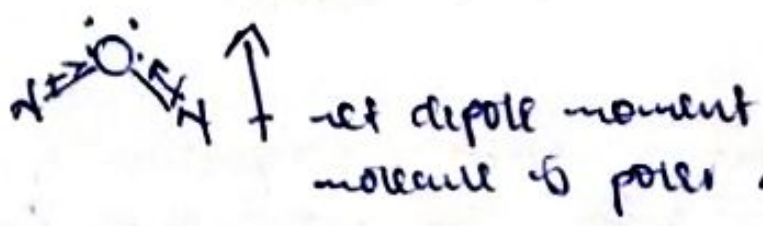 O
H H net dipole moment
molecule is polar.